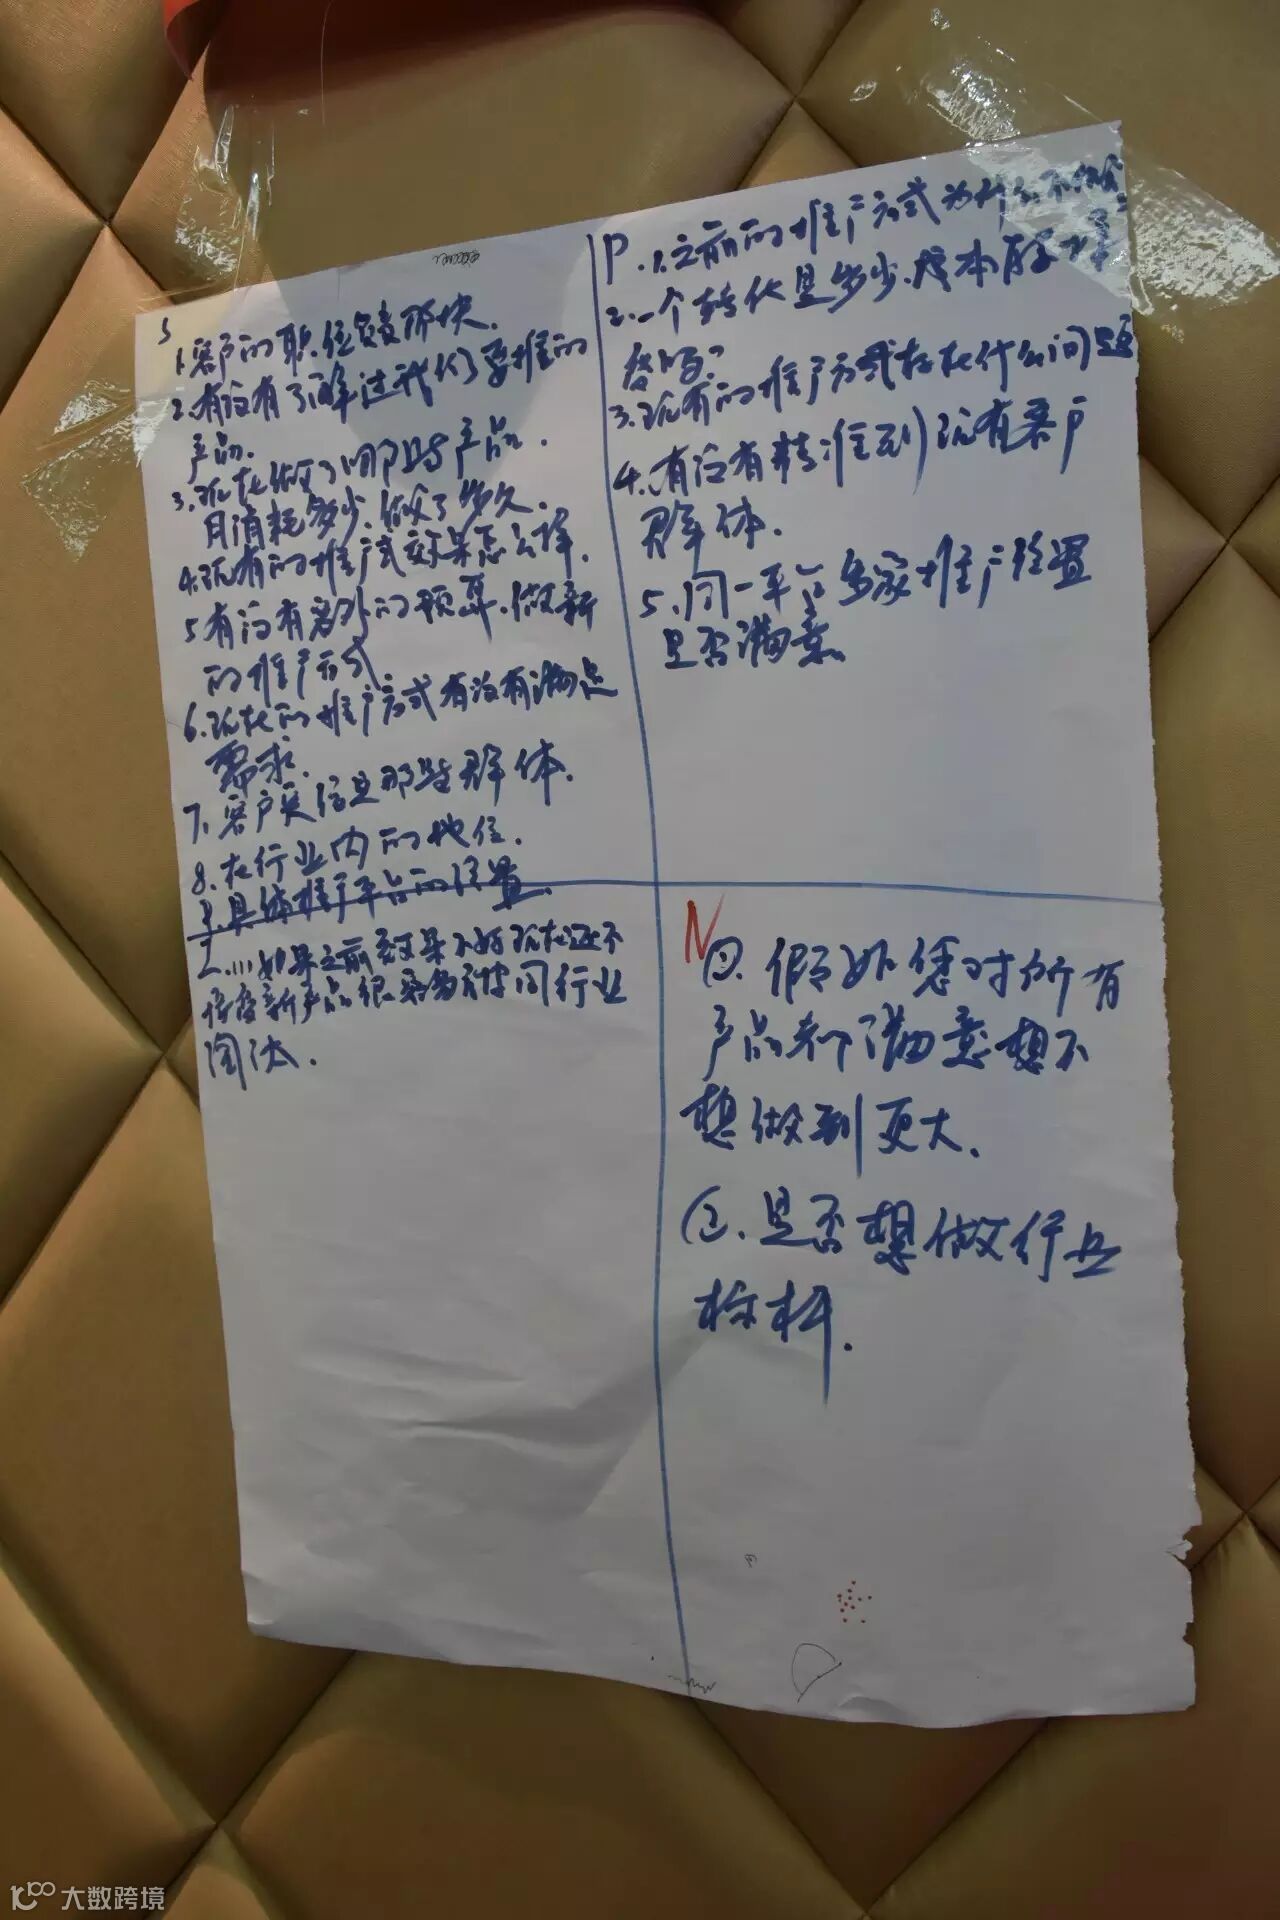 S
1.客户的职位负责那块.
2.有没有了解过我们要推的
产品.
3.现在做了哪些产品.
月消耗多少.做了多久.
4.现有的推广式效果怎么样.
5有没有额外的预算.做新
的推广方式
6.现在的推广方式有没有满足
需求.
7.客户是那些群体.
8.在行业内的地位.
9.具体推广平台的位置.
I.如果之前效果不好现在还不
新产品很容易被同行业
淘汰.
P.1.之前的推广方式为什么不做
2.一个转化是多少.成本
3.现有的推广方式存在什么问题
4.有没有精准到现有客户
群体.
5.同一平台多家推广位置
是否满意
N
①.假如您对所有
产品都满意想不
想做到更大.
②.是否想做行业
标杆.
大数跨境